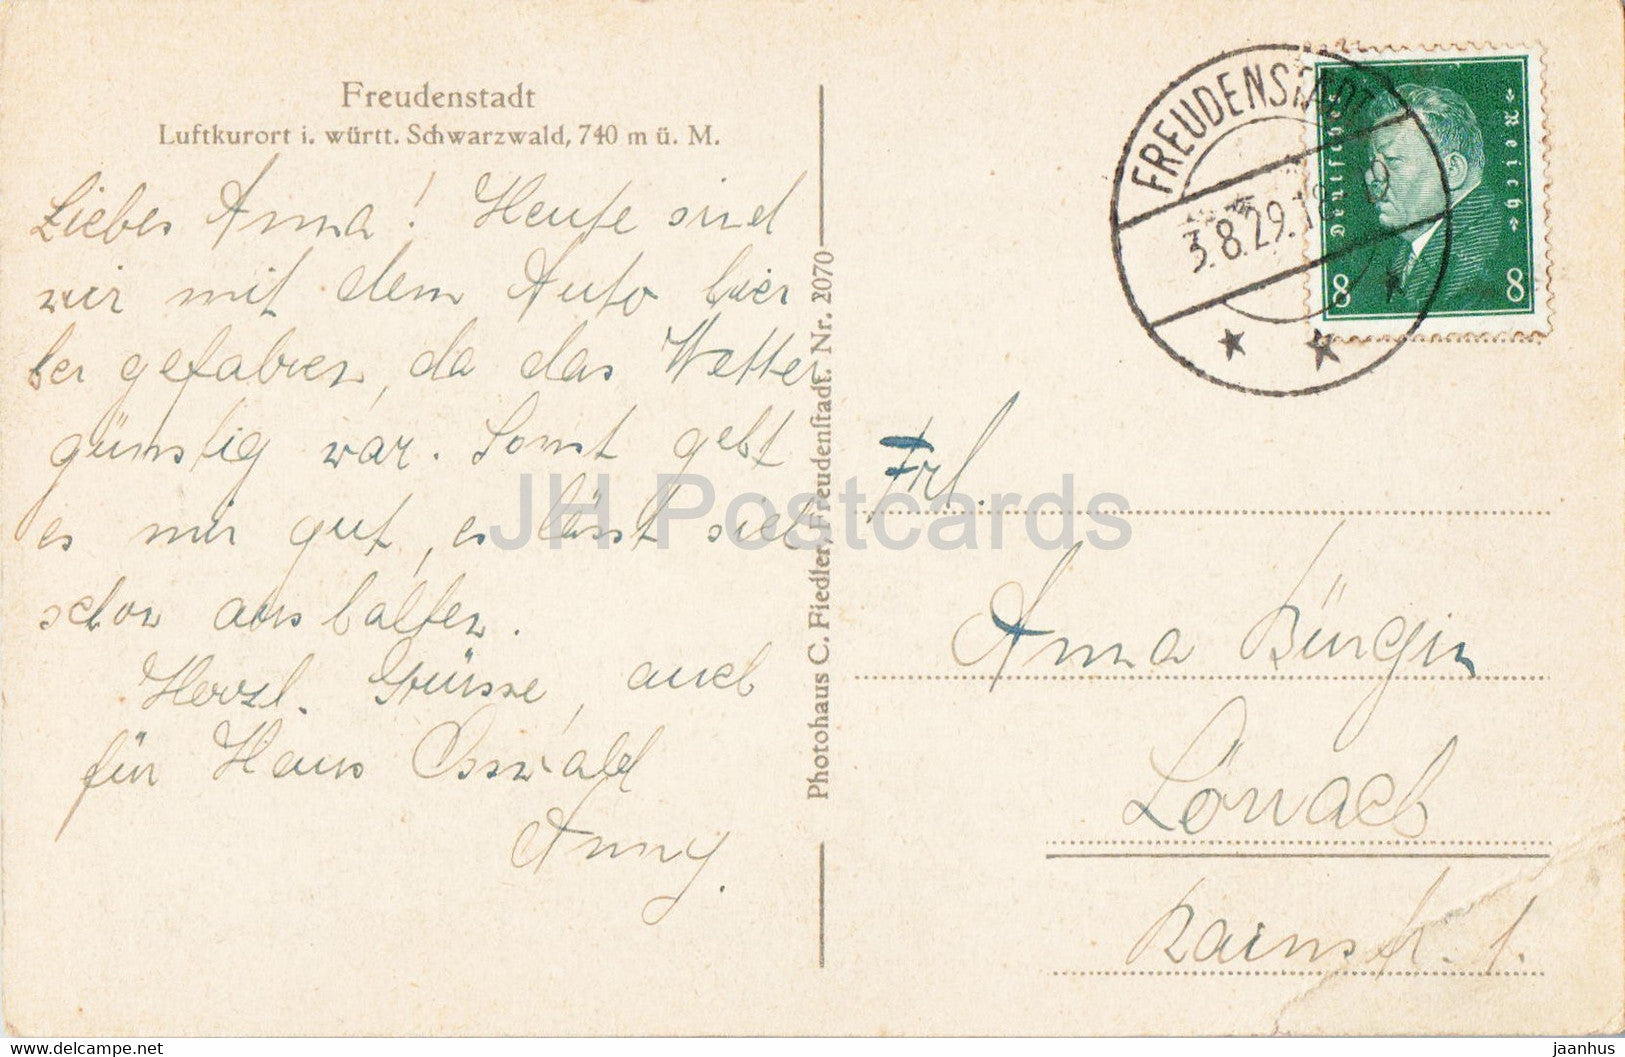 Freudenstadt
Luftkurort i. württ. Schwarzwald, 740 m ü. M.
Liebes Anna! Heute sind
wir mit dem Auto hier
her gefahren, da das Wetter
günstig war. Sonst geht
es mir gut, es lässt sich
schon aushalten.
Herzl. Grüsse, auch
für Haus Osswald
Anny.
Photohaus C. Fiedler, Freudenstadt. Nr. 2070
FREUDENSTADT
3.8.29.18
Deutsches Reich
8 8
Frl.
Anna Bürgin
Lörrach
Rainstr. 1.
JH Postcards
https://www.jhpostcards.com
jaanhus